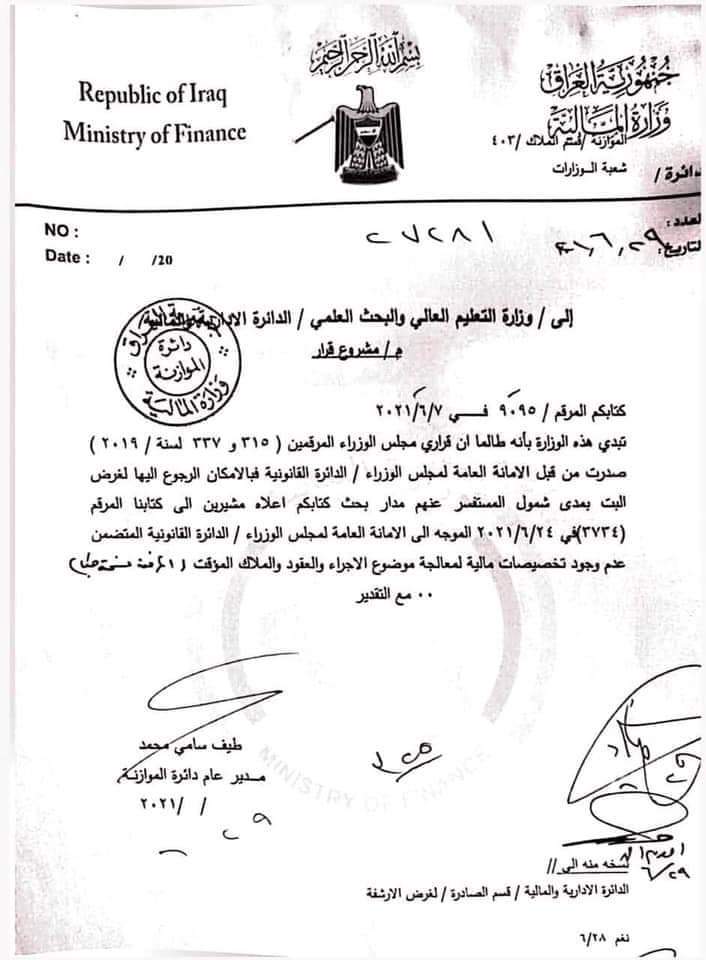 بسم الله الرحمن الرحيم
Republic of Iraq
Ministry of Finance
جمهورية العراق
وزارة المالية
الموازنة /قسم الملاك /٤٠٣
دائرة /
شعبة الوزارات
NO :
العدد :
Date : / /20
التاريخ:
إلى / وزارة التعليم العالي والبحث العلمي / الدائرة الادارية والمالية
م / مشروع قرار
دائرة
الموازنة
وزارة المالية
كتابكم المرقم / ٩٠٩٥ فــي ٢٠٢١/٦/٧
تبدي هذه الوزارة بأنه طالما ان قراري مجلس الوزراء المرقمين ( ٣١٥ و ٣٣٧ لسنة / ٢٠١٩ )
صدرت من قبل الامانة العامة لمجلس الوزراء / الدائرة القانونية فبالامكان الرجوع اليها لغرض
البت بمدى شمول المستفسر عنهم مدار بحث كتابكم اعلاه مشيرين الى كتابنا المرقم
(٣٧٣٤)في ٢٠٢١/٦/٢٤ الموجه الى الامانة العامة لمجلس الوزراء / الدائرة القانونية المتضمن
عدم وجود تخصيصات مالية لمعالجة موضوع الاجراء والعقود والملاك المؤقت
٠٠ مع التقدير
طيف سامي محمد
مـدير عام دائرة الموازنـة
/ /٢٠٢١
MINISTRY OF FINANCE
نسخه منه الى //
الدائرة الادارية والمالية / قسم الصادرة / لغرض الارشفة
نغم ٦/٢٨